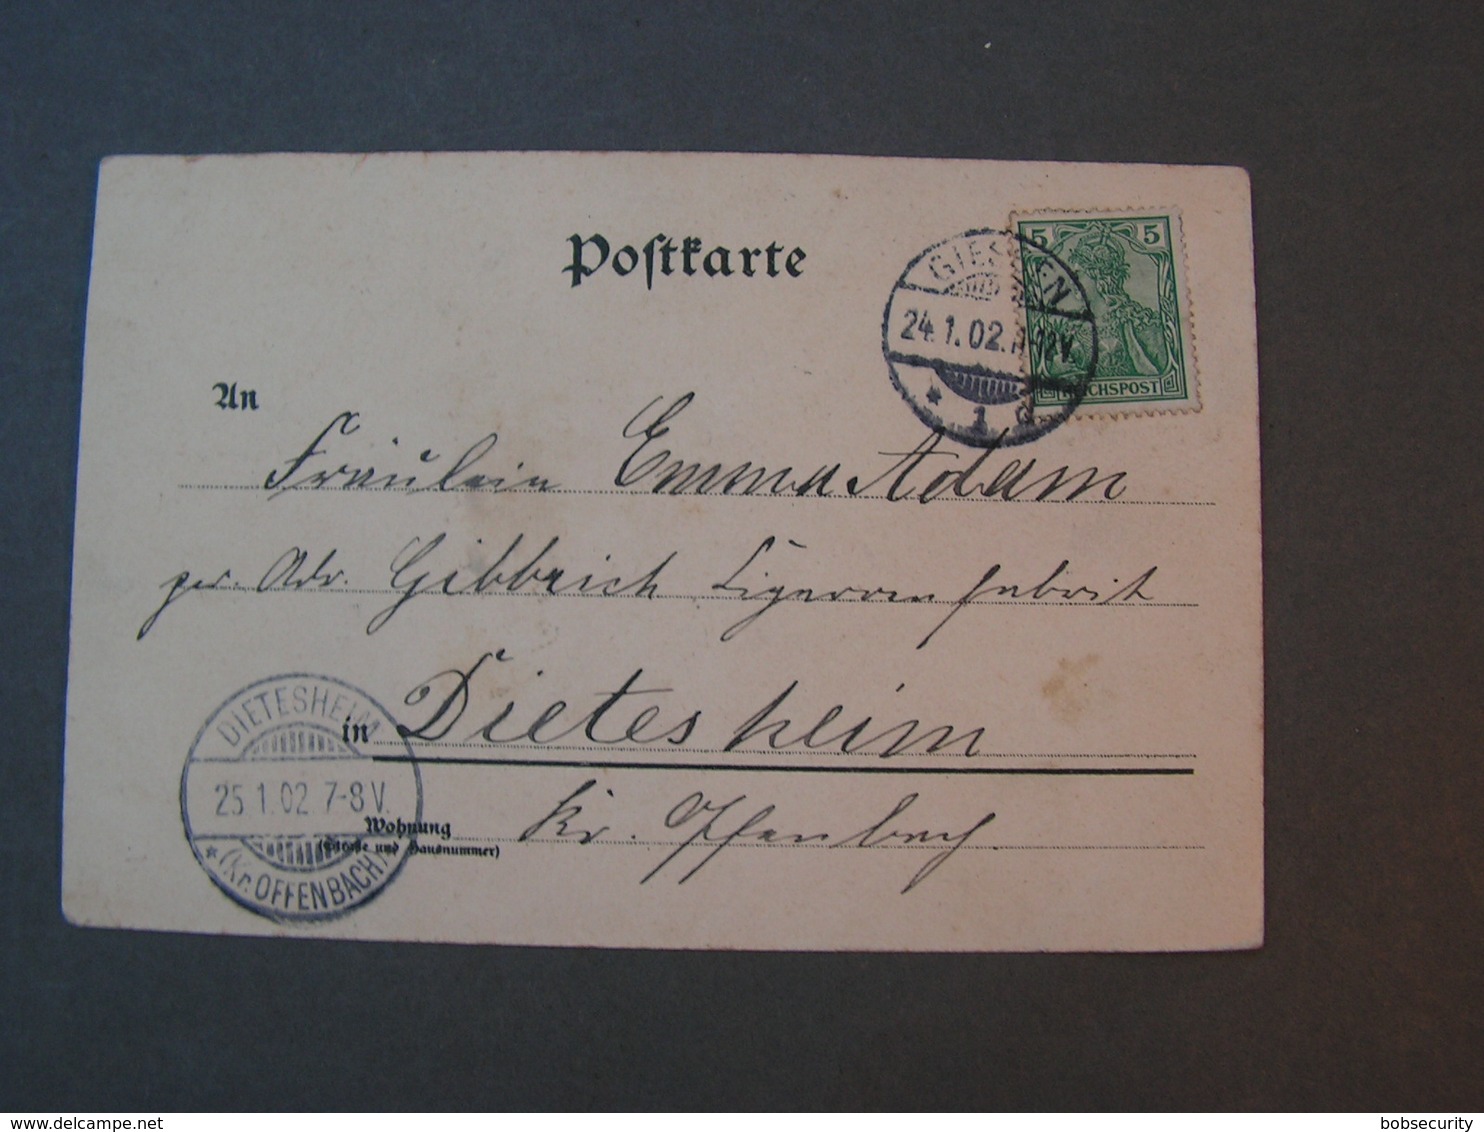 Postkarte
5 5
REICHSPOST
GIESSEN
24.1.02. 11-12V.
* 1 d.
An
Fräulein Emma Adam
per. Adr. Gibbrich Zigarrenfabrik
in Dietesheim
Wohnung
(Straße und Hausnummer)
Kr. Offenbach
DIETESHEIM
25 1.02 7-8 V.
* (Kr. OFFENBACH)
© delcampe.net
bobsecurity